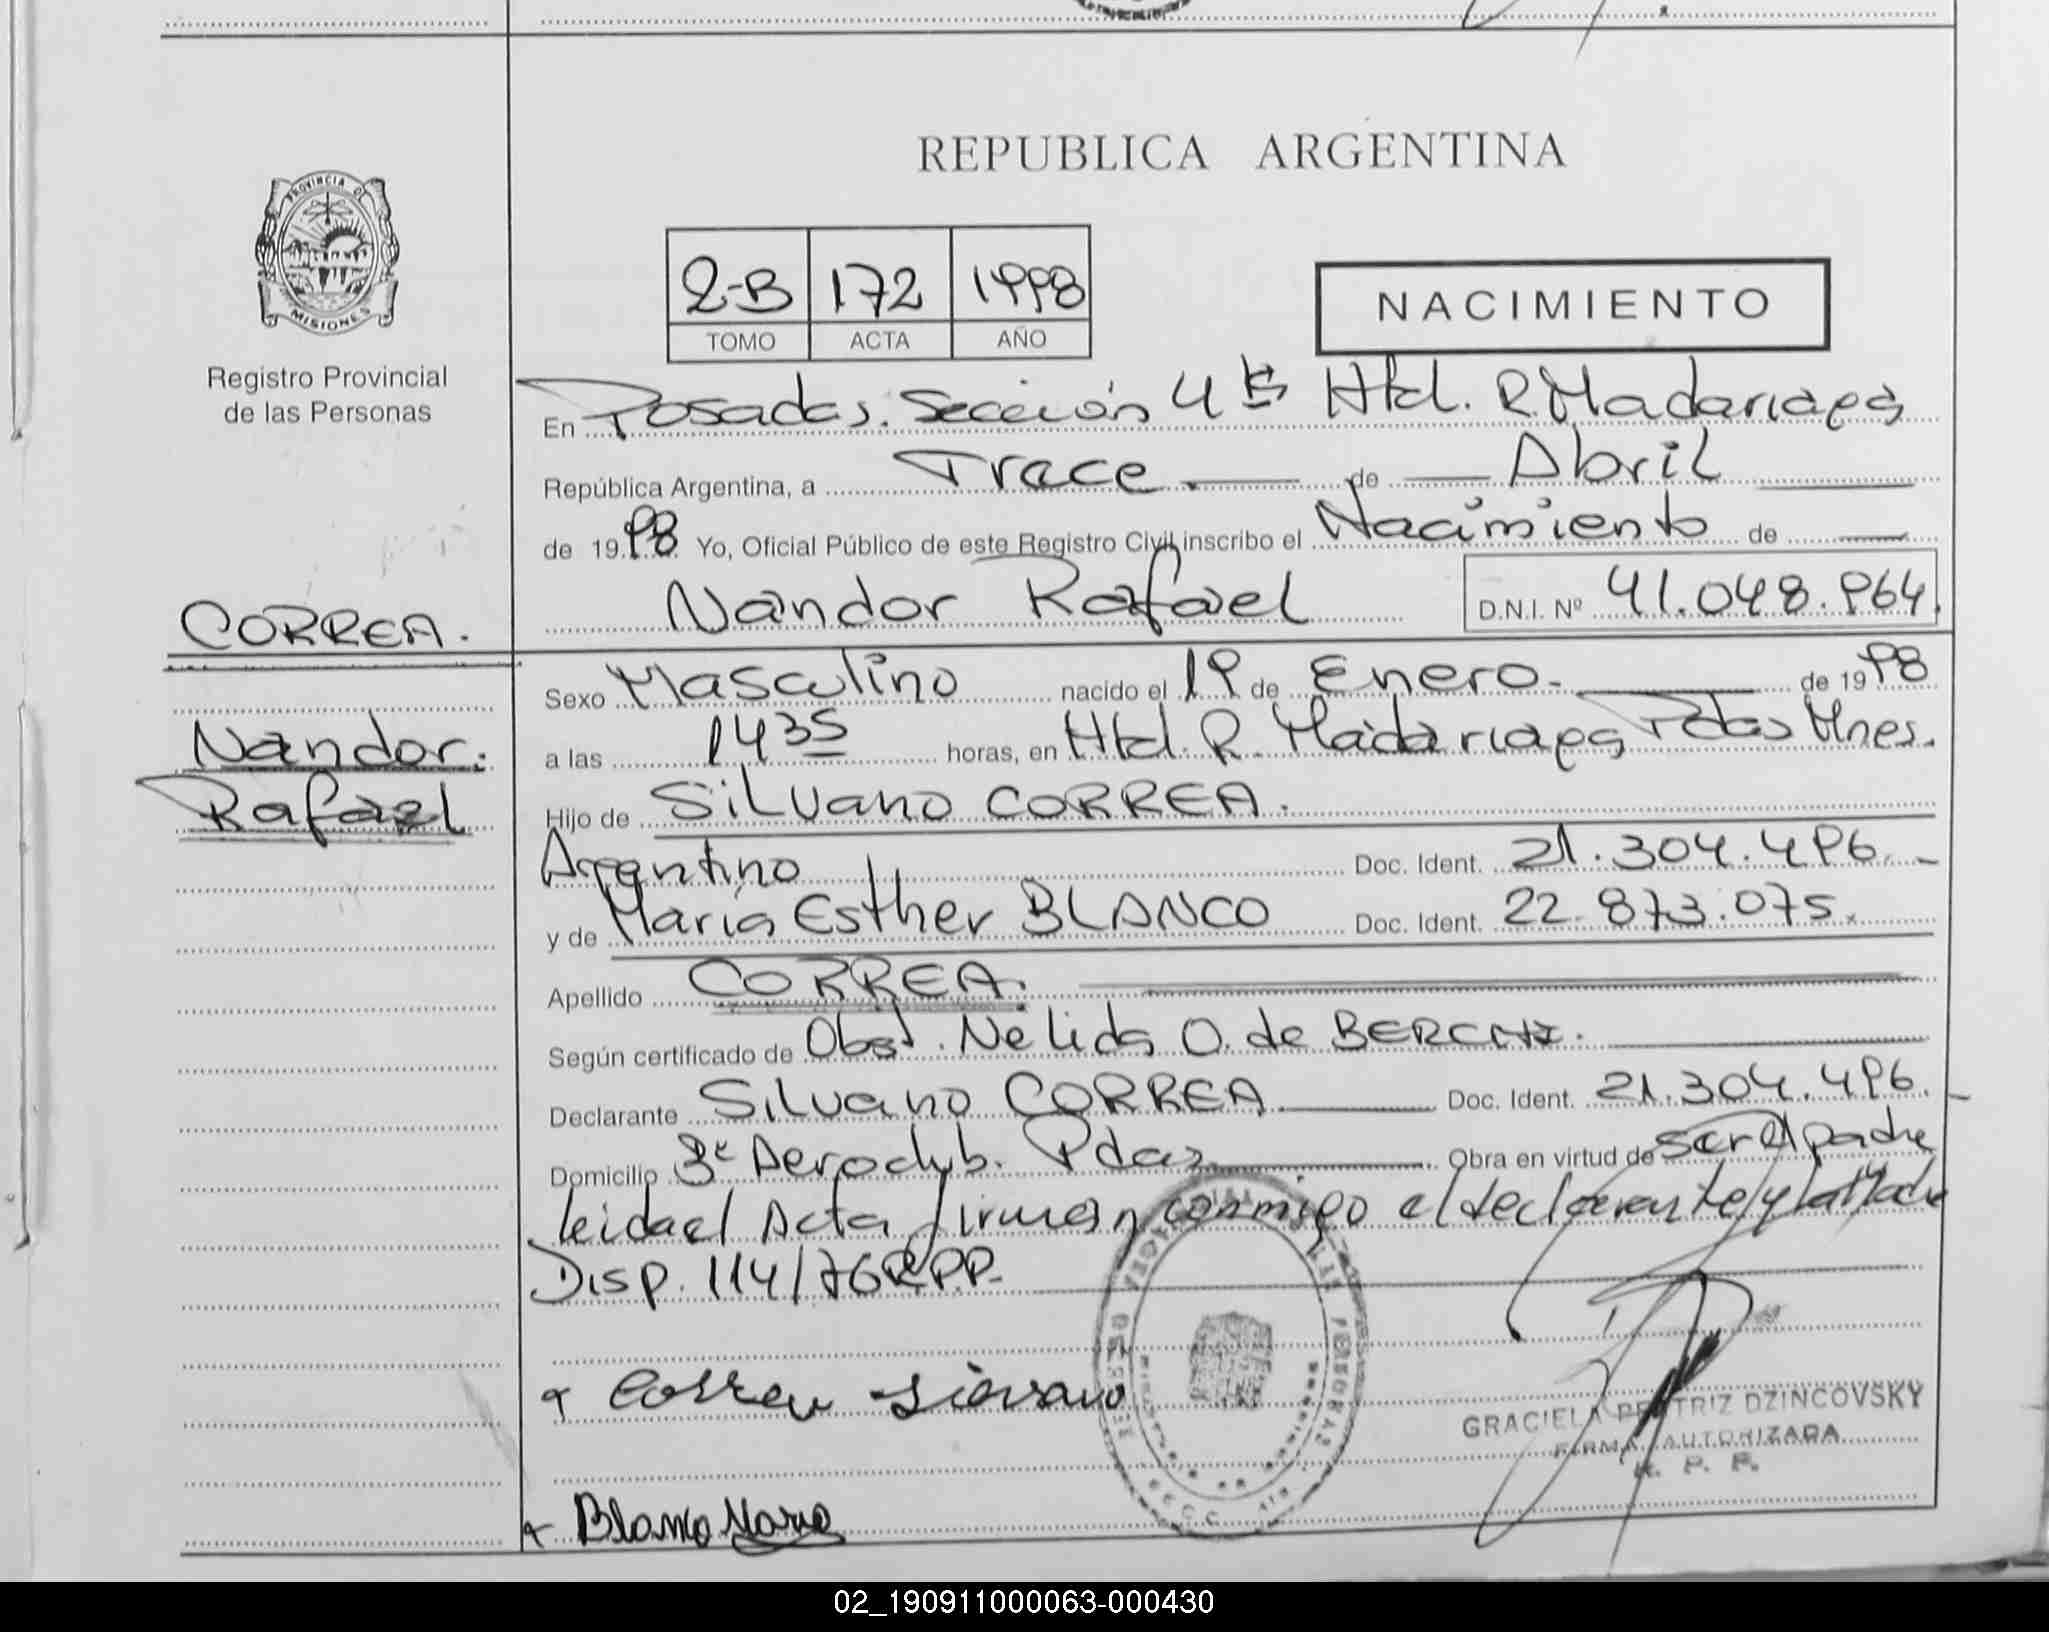 REPUBLICA ARGENTINA
PROVINCIA DE
MISIONES
Registro Provincial
de las Personas
2-B 172 1998
TOMO ACTA AÑO
NACIMIENTO
En Posadas. Sección 4ta Htal. R. Madariaga
República Argentina, a Trece de Abril
de 1998 Yo, Oficial Público de este Registro Civil inscribo el Nacimiento de
Nándor Rafael D.N.I. Nº 41.048.964.
CORREA.
Nándor.
Rafael
Sexo Masculino nacido el 19 de Enero. de 1998
a las 14 35 horas, en Htal. R. Madariaga Pdas Mnes.
Hijo de Silvano CORREA.
Argentino Doc. Ident. 21.304.496.
y de María Esther BLANCO Doc. Ident. 22.873.075.
Apellido CORREA.
Según certificado de Obst. Nelida O. de
Declarante Silvano CORREA Doc. Ident. 21.304.496.
Domicilio Bº Aeroclub. Pdas Obra en virtud de ser el padre
leida el Acta firman conmigo el declarante y la Madre
Disp. 114/76 R.P.P.
Correa Silvano
GRACIELA BEATRIZ DZINCOVSKY
FIRMA AUTORIZADA
R. P. P.
Blanco Maria
02_190911000063-000430